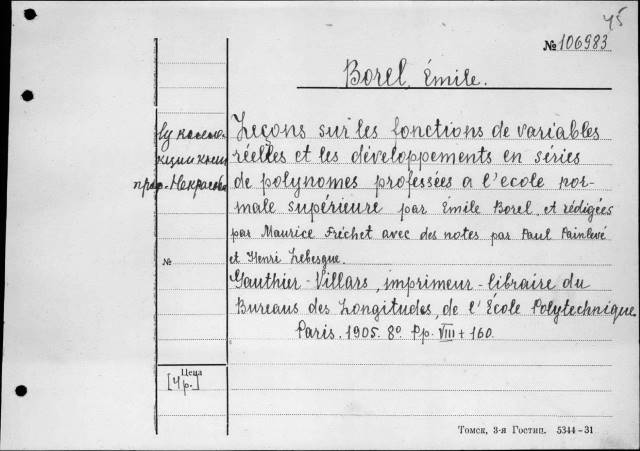 45
№ 106983
Borel, Émile.
Leçons sur les fonctions de variables
réelles et les développements en séries
de polynomes professées a l'ecole nor-
male supérieure par Émile Borel, et rédigées
par Maurice Fréchet avec des notes par Paul Painlevé
et Henri Lebesgue.
Gauthier-Villars, imprimeur-libraire du
Bureaus des Longitudes, de l'École Polytechnique
Paris. 1905. 8º. Pp. VIII + 160.
проф. Некрасова
№
Цена
[4 р.]
Томск, 3-я Гостип. 5344-31